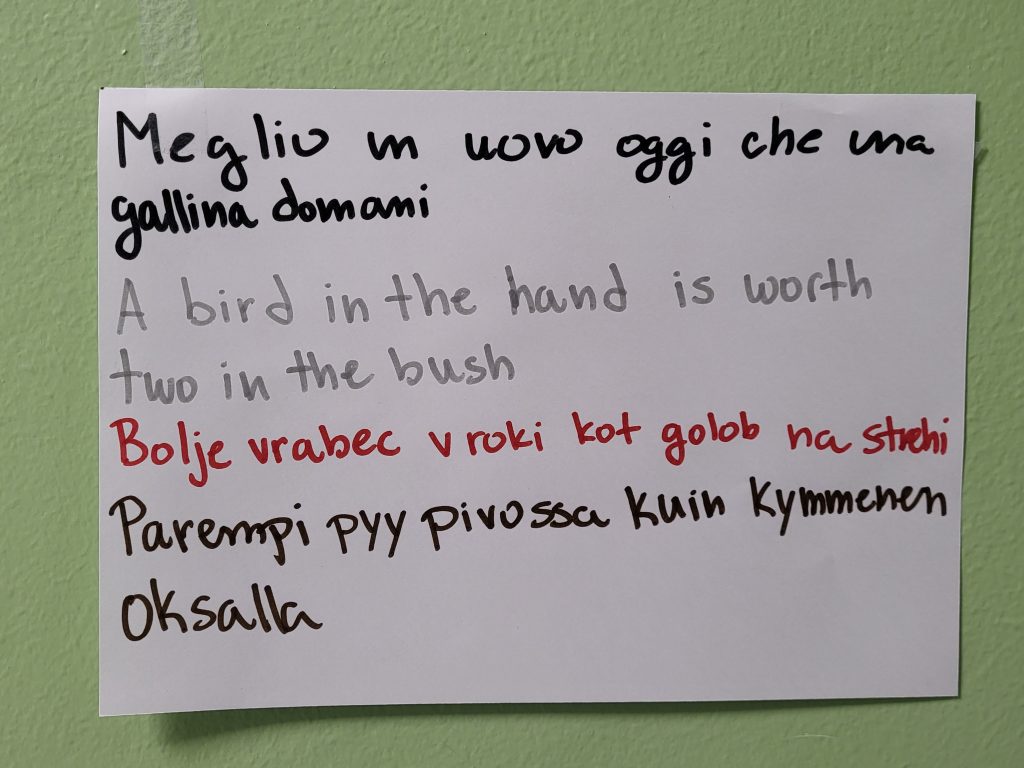 Meglio un uovo oggi che una
gallina domani
A bird in the hand is worth
two in the bush
Bolje vrabec v roki kot golob na strehi
Parempi pyy pivossa kuin kymmenen
oksalla